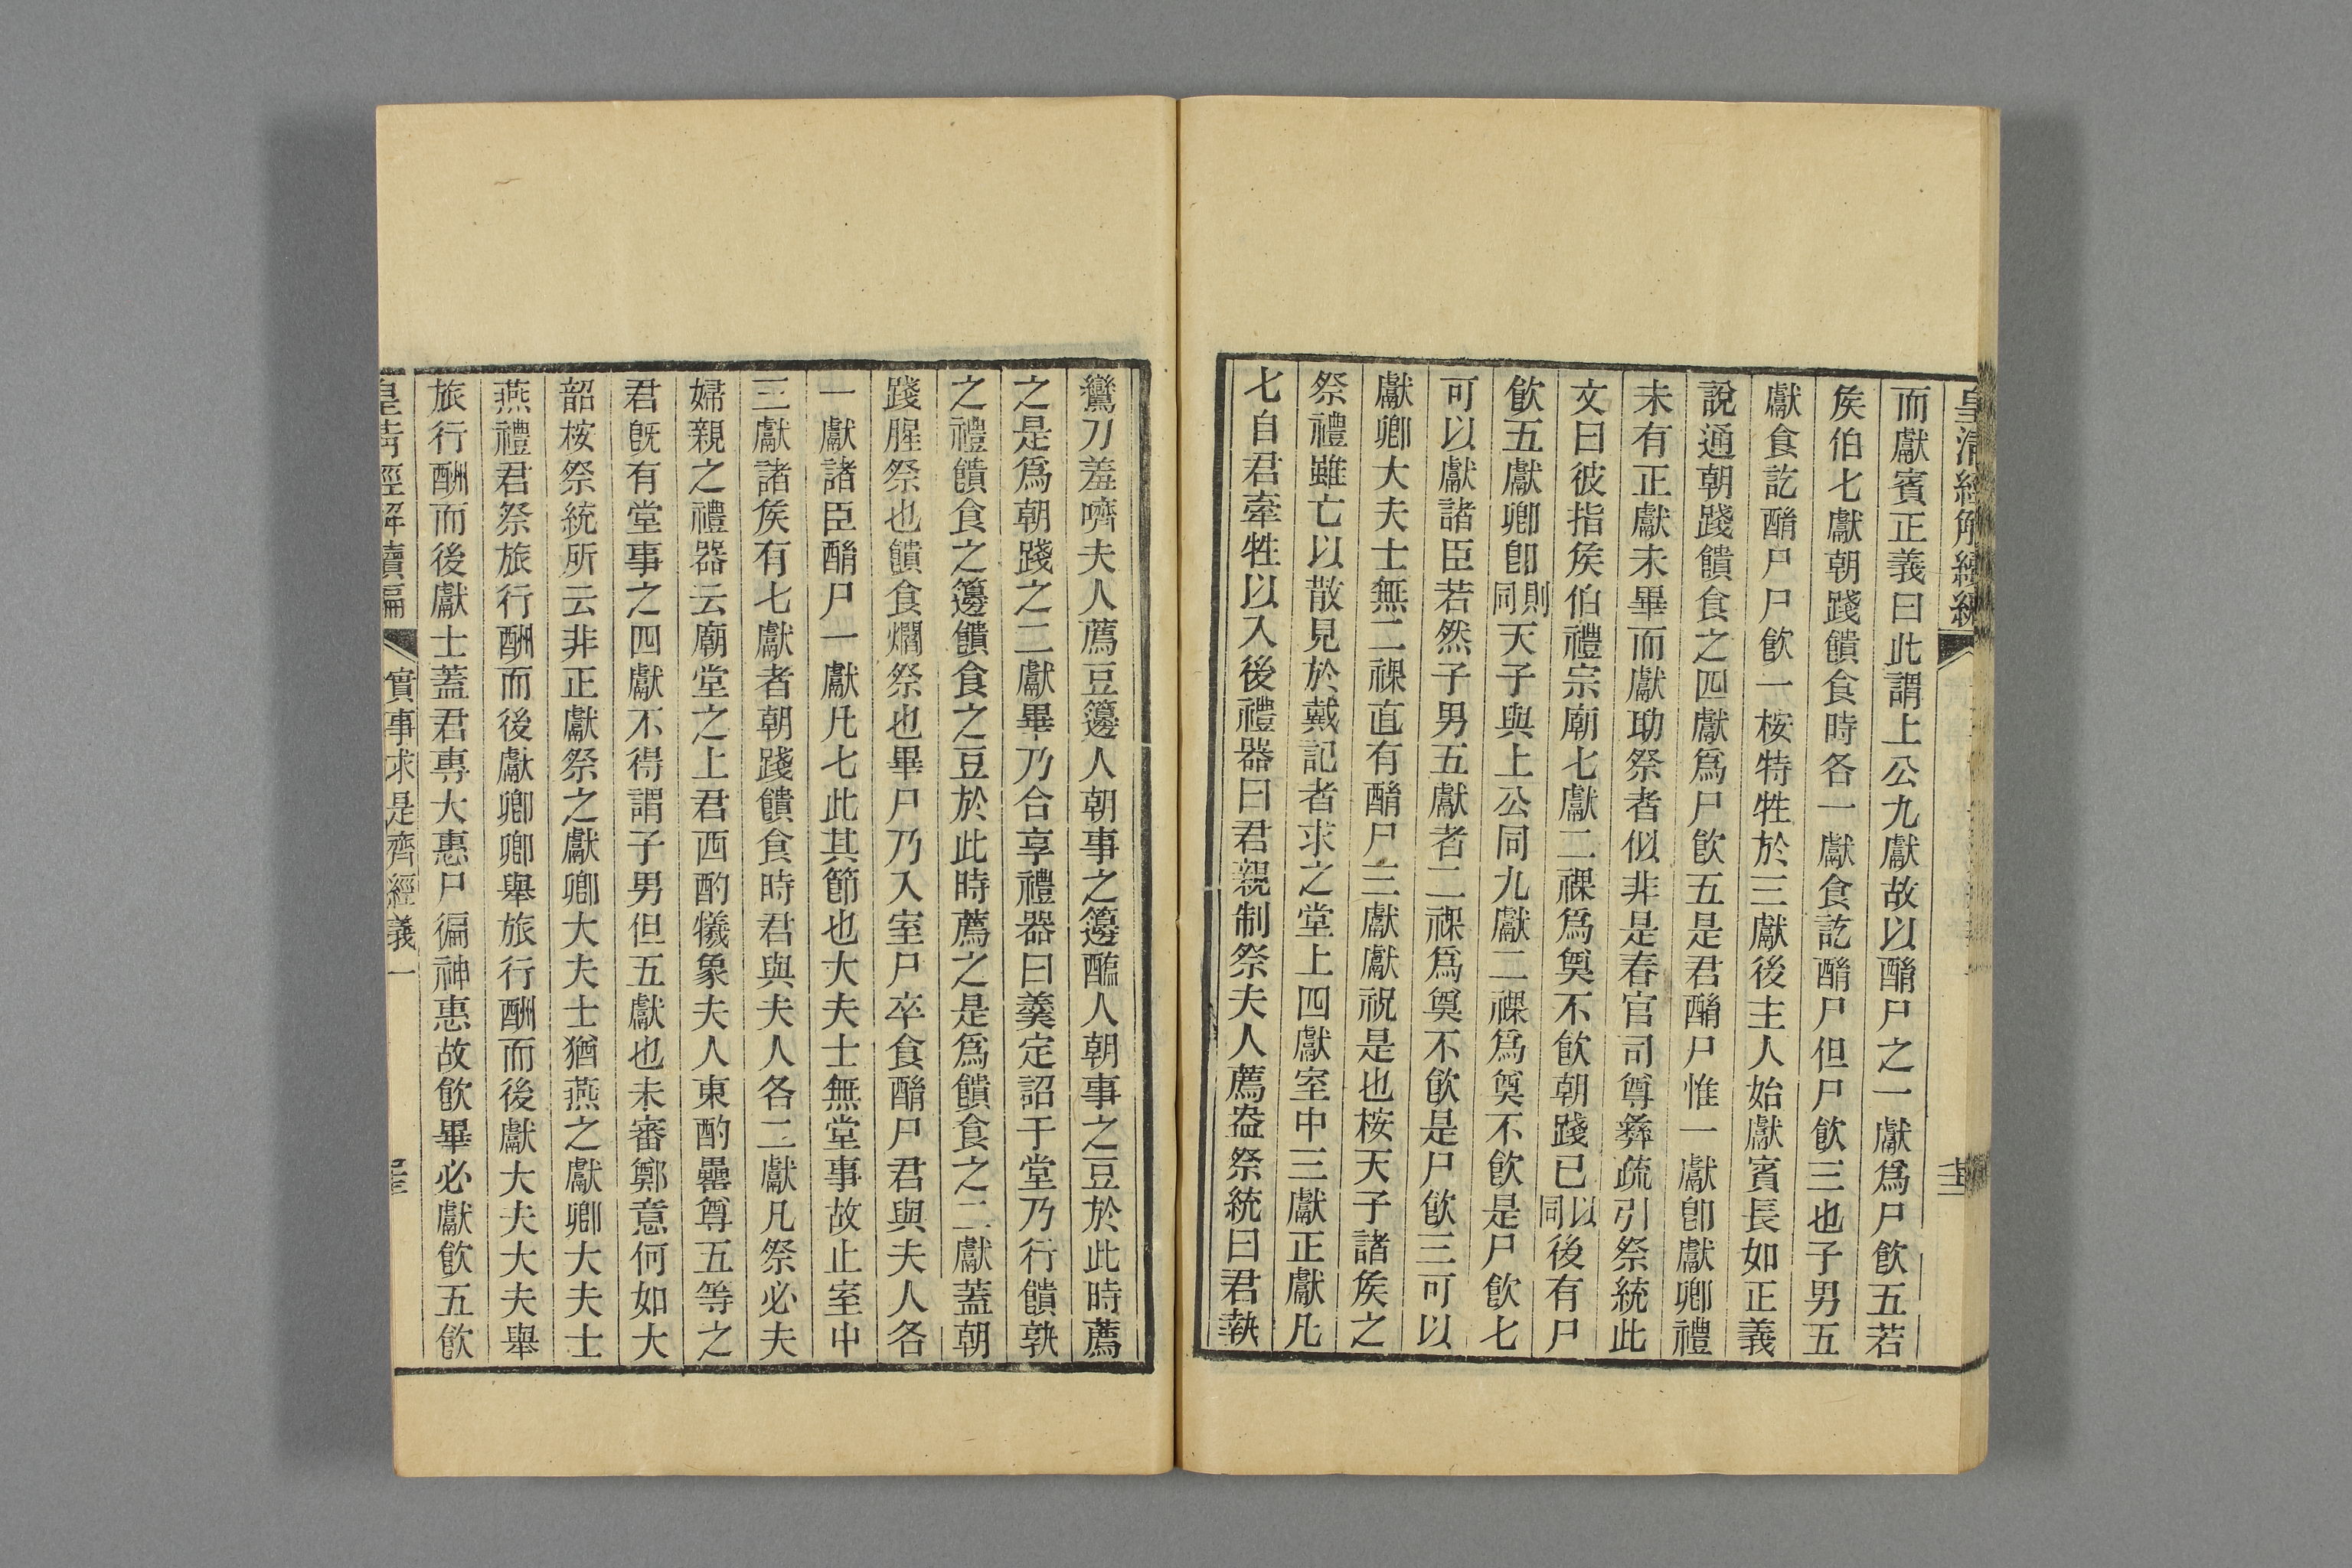 皇清經解續編
而獻賓正義曰此謂上公九獻故以酳尸之一獻爲尸飮五若
矦伯七獻朝踐饋食時各一獻食訖酳尸但尸飮三也子男五
獻食訖酳尸尸飮一桉特牲於三獻後主人始獻賓長如正義
說通朝踐饋食之四獻爲尸飮五是君酳尸惟一獻卽獻卿禮
未有正獻未畢而獻助祭者似非是春官司尊彝疏引祭統此
文曰彼指矦伯禮宗廟七獻二祼爲奠不飮朝踐已同以後有尸
飮五獻卿卽同則天子與上公同九獻二祼爲奠不飮是尸飮七
可以獻諸臣若然子男五獻者二祼爲奠不飮是尸飮三可以
獻卿大夫士無二祼直有酳尸三獻獻祝是也桉天子諸矦之
祭禮雖亡以散見於戴記者求之堂上四獻室中三獻正獻凡
七自君牽牲以入後禮器曰君親制祭夫人薦盎祭統曰君執
鸞刀羞嚌夫人薦豆籩人朝事之籩醢人朝事之豆於此時薦
之是爲朝踐之二獻畢乃合享禮器曰羹定詔于堂乃行饋孰
之禮饋食之籩饋食之豆於此時薦之是爲饋食之二獻蓋朝
踐腥祭也饋食爓祭也畢尸乃入室尸卒食酳尸君與夫人各
一獻諸臣酳尸一獻凡七此其節也大夫士無堂事故止室中
三獻諸矦有七獻者朝踐饋食時君與夫人各二獻凡祭必夫
婦親之禮器云廟堂之上君西酌犧象夫人東酌罍尊五等之
君旣有堂事之四獻不得謂子男但五獻也未審鄭意何如大
韶桉祭統所云非正獻祭之獻卿大夫士猶燕之獻卿大夫士
燕禮君祭旅行酬而後獻卿卿舉旅行酬而後獻大夫大夫舉
旅行酬而後獻士蓋君專大惠尸徧神惠故飮畢必獻飮五飮
皇清經解續編 實事求是齊經義一